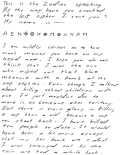 This is the Zodiac speaking
By the way have you cracked
the last cipher I sent you?
My name is
A E N ⊕ K M ⊕ N A M
I am mildly cerous as to how
much money you have on my
head now. I hope you do not
think that I was the one
who wiped out that blue
meannie with a bomb at the
cop station. Even though I talked
about killing school children with
one. It just wouldnt doo to
move in on someone elses teritory.
But there is more glory in killing
a cop than a cid because a cop
can shoot back. I have killed
ten people to date. It would
have been a lot more except
that my bus bomb was a dud.
I was swamped out by the
rain we had a while back.